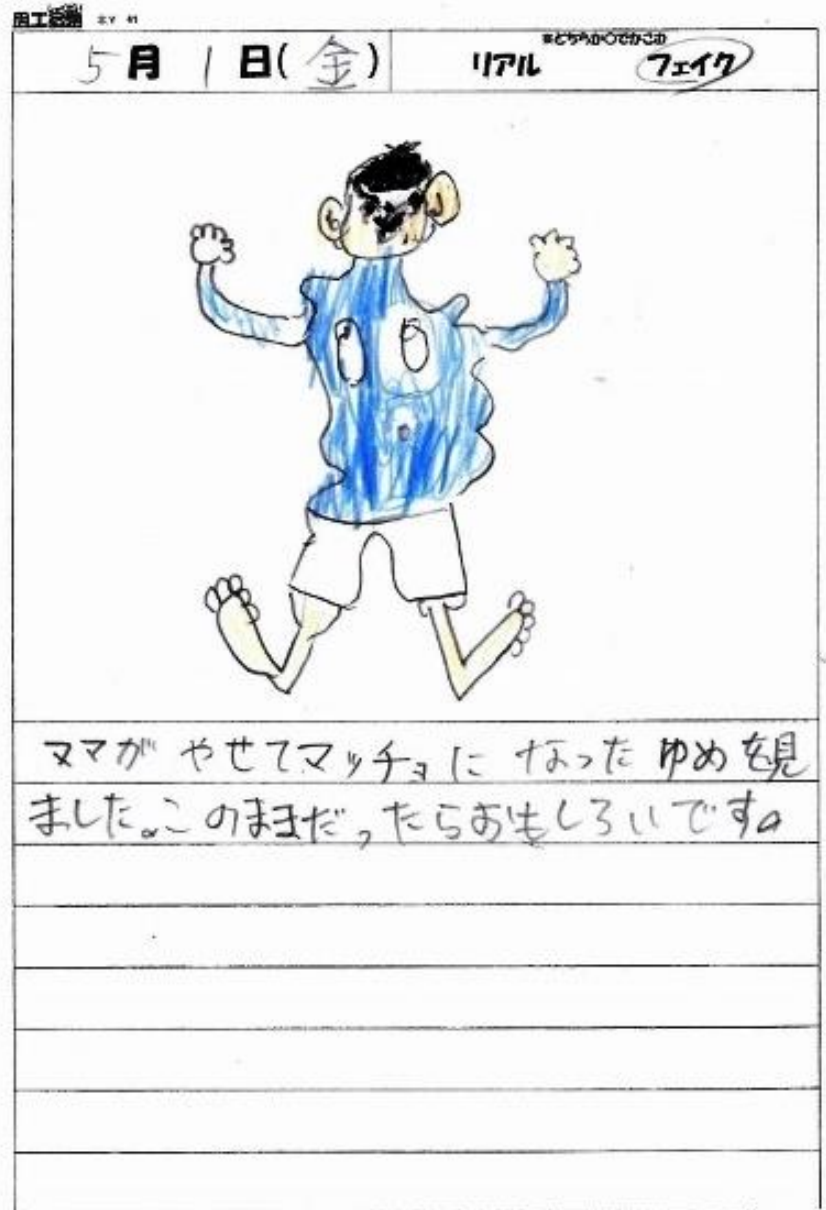 5月 1日(金)
※どちらか○でかこむ
リアル フェイク
ママが やせてマッチョに なった ゆめを見
ました。このままだったらおもしろいです。